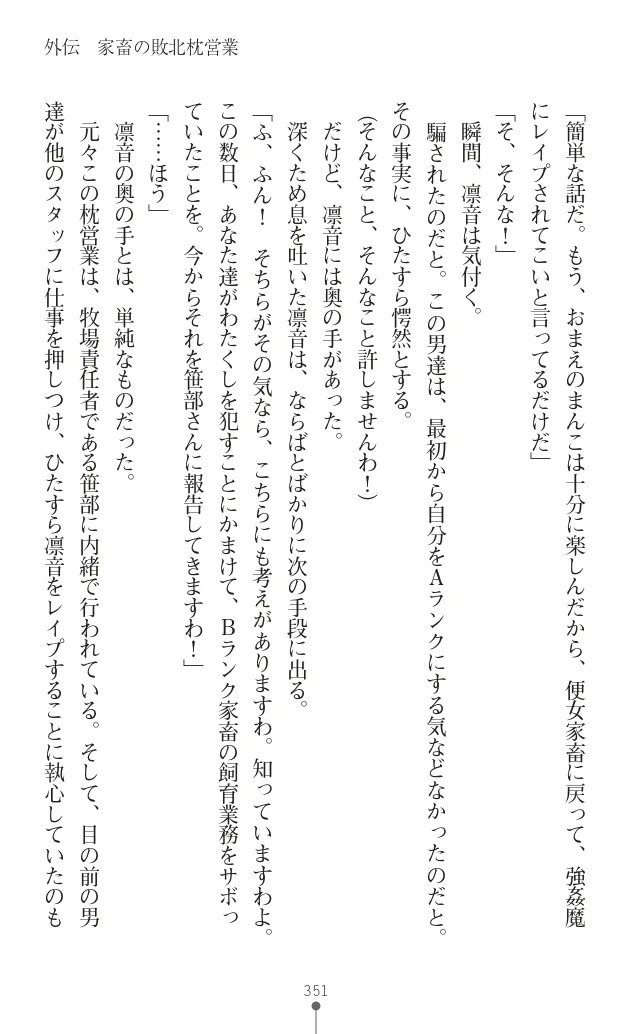 外伝　家畜の敗北枕営業
「簡単な話だ。もう、おまえのまんこは十分に楽しんだから、便女家畜に戻って、強姦魔
にレイプされてこいと言ってるだけだ」
「そ、そんな！」
瞬間、凛音は気付く。
騙されたのだと。この男達は、最初から自分をＡランクにする気などなかったのだと。
その事実に、ひたすら愕然とする。
（そんなこと、そんなこと許しませんわ！）
だけど、凛音には奥の手があった。
深くため息を吐いた凛音は、ならばとばかりに次の手段に出る。
「ふ、ふん！　そちらがその気なら、こちらにも考えがありますわ。知っていますわよ。
この数日、あなた達がわたくしを犯すことにかまけて、Ｂランク家畜の飼育業務をサボっ
ていたことを。今からそれを笹部さんに報告してきますわ！」
「……ほう」
凛音の奥の手とは、単純なものだった。
元々この枕営業は、牧場責任者である笹部に内緒で行われている。そして、目の前の男
達が他のスタッフに仕事を押しつけ、ひたすら凛音をレイプすることに執心していたのも
351